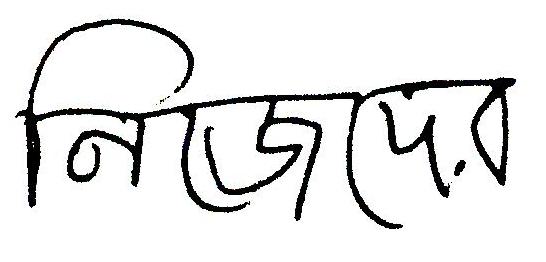 নিজেদের